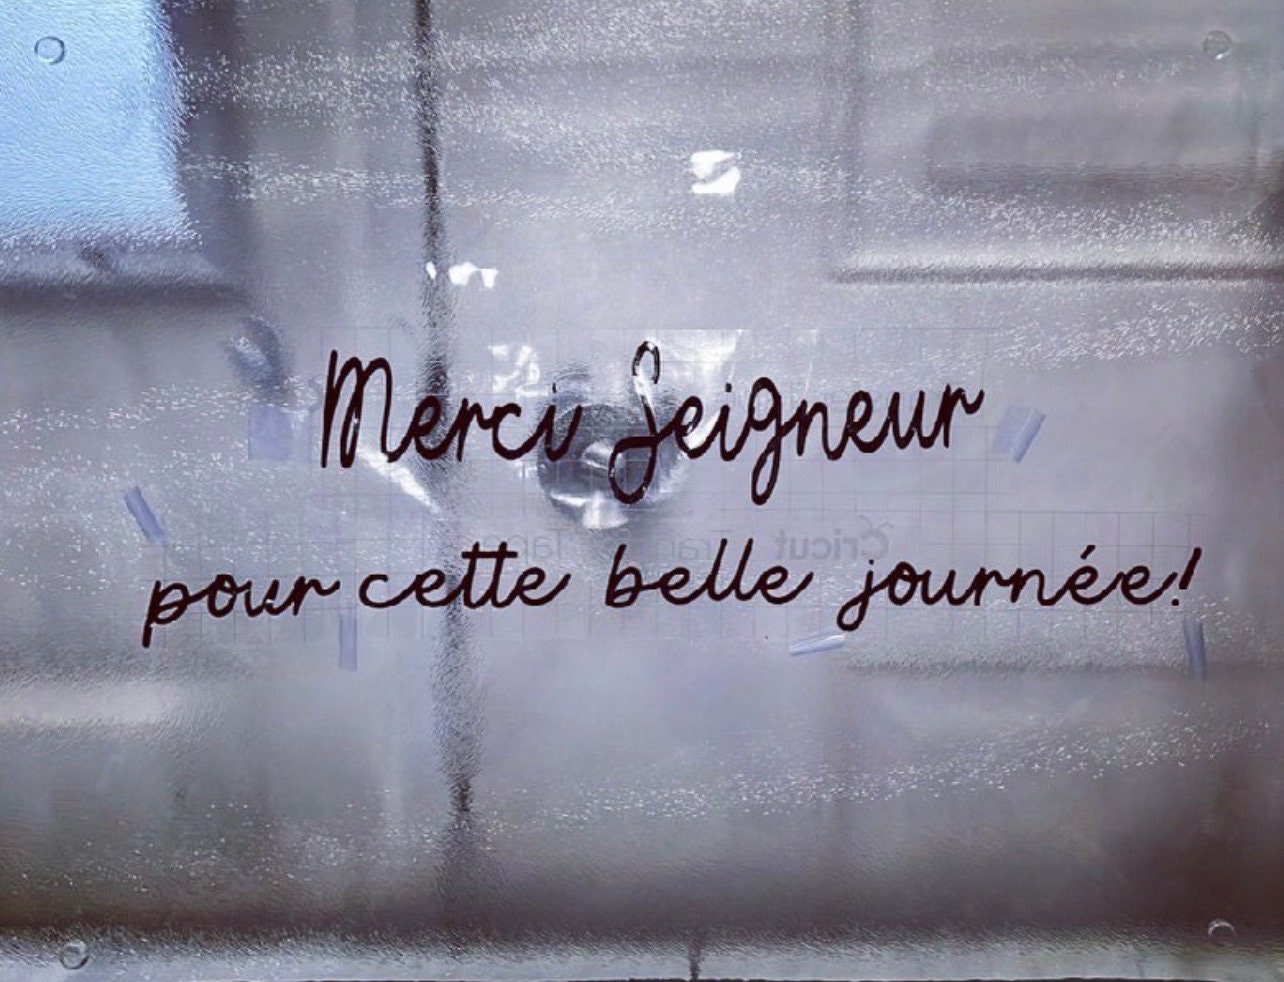 Merci Seigneur
Cricut
pour cette belle journée!